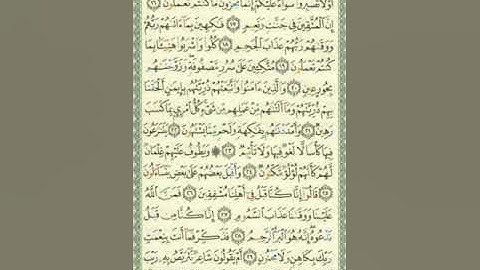 أَوْ لَا تَصْبِرُوا۟ سَوَآءٌ عَلَيْكُمْ إِنَّمَا تُجْزَوْنَ مَا كُنتُمْ تَعْمَلُونَ ١٦
إِنَّ ٱلْمُتَّقِينَ فِى جَنَّـٰتٍ وَنَعِيمٍ ١٧ فَـٰكِهِينَ بِمَآ ءَاتَىٰهُمْ رَبُّهُمْ
وَوَقَىٰهُمْ رَبُّهُمْ عَذَابَ ٱلْجَحِيمِ ١٨ كُلُوا۟ وَٱشْرَبُوا۟ هَنِيٓـًٔۢا بِمَا
كُنتُمْ تَعْمَلُونَ ١٩ مُتَّكِـِٔينَ عَلَىٰ سُرُرٍ مَّصْفُوفَةٍ وَزَوَّجْنَـٰهُم
بِحُورٍ عِينٍ ٢٠ وَٱلَّذِينَ ءَامَنُوا۟ وَٱتَّبَعَتْهُمْ ذُرِّيَّتُهُم بِإِيمَـٰنٍ أَلْحَقْنَا
بِهِمْ ذُرِّيَّتَهُمْ وَمَآ أَلَتْنَـٰهُم مِّنْ عَمَلِهِم مِّن شَىْءٍ كُلُّ ٱمْرِئٍۭ بِمَا كَسَبَ
رَهِينٌ ٢١ وَأَمْدَدْنَـٰهُم بِفَـٰكِهَةٍ وَلَحْمٍ مِّمَّا يَشْتَهُونَ ٢٢ يَتَنَـٰزَعُونَ
فِيهَا كَأْسًا لَّا لَغْوٌ فِيهَا وَلَا تَأْثِيمٌ ٢٣ ۞ وَيَطُوفُ عَلَيْهِمْ غِلْمَانٌ
لَّهُمْ كَأَنَّهُمْ لُؤْلُؤٌ مَّكْنُونٌ ٢٤ وَأَقْبَلَ بَعْضُهُمْ عَلَىٰ بَعْضٍ يَتَسَآءَلُونَ
٢٥ قَالُوٓا۟ إِنَّا كُنَّا قَبْلُ فِىٓ أَهْلِنَا مُشْفِقِينَ ٢٦ فَمَنَّ ٱللَّهُ
عَلَيْنَا وَوَقَىٰنَا عَذَابَ ٱلسَّمُومِ ٢٧ إِنَّا كُنَّا مِن قَبْلُ
نَدْعُوهُ إِنَّهُۥ هُوَ ٱلْبَرُّ ٱلرَّحِيمُ ٢٨ فَذَكِّرْ فَمَآ أَنتَ بِنِعْمَتِ
رَبِّكَ بِكَاهِنٍ وَلَا مَجْنُونٍ ٢٩ أَمْ يَقُولُونَ شَاعِرٌ نَّتَرَبَّصُ بِهِۦ رَيْبَ